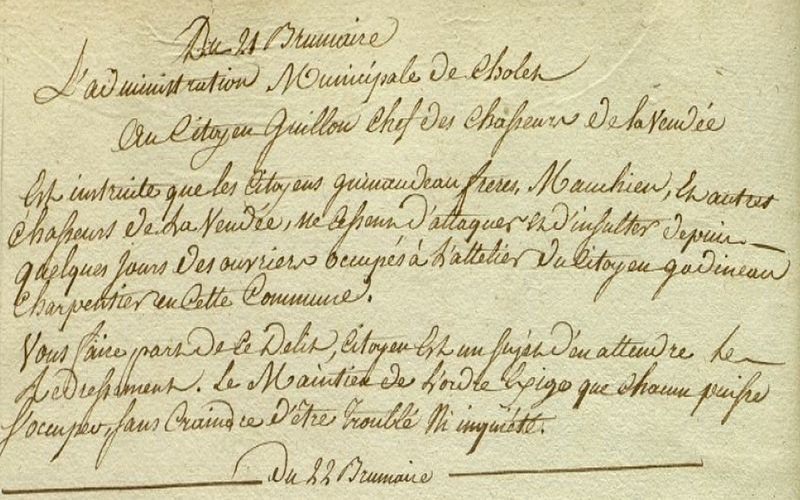 Du 21 Brumaire
L'administration Municipale de Cholet
Au Citoyen Guillon Chef des Chasseurs de la Vendée
Est instruite que les Citoyens guimaudeau freres, Mauchien, et autres
Chasseurs de La Vendée, ne cessent d'attaquer et d'insulter depuis
quelques jours des ouvriers occupés à L'attelier du Citoyen godineau
Charpentier en Cette Commune.
Vous faire part de ce Delit, Citoyen Est un sujet d'en attendre Le
Redressement. Le Maintien de L'ordre Exige que chacun puisse
s'occuper, sans Craindre d'être Troublé Ni inquiété.
Du 22 Brumaire